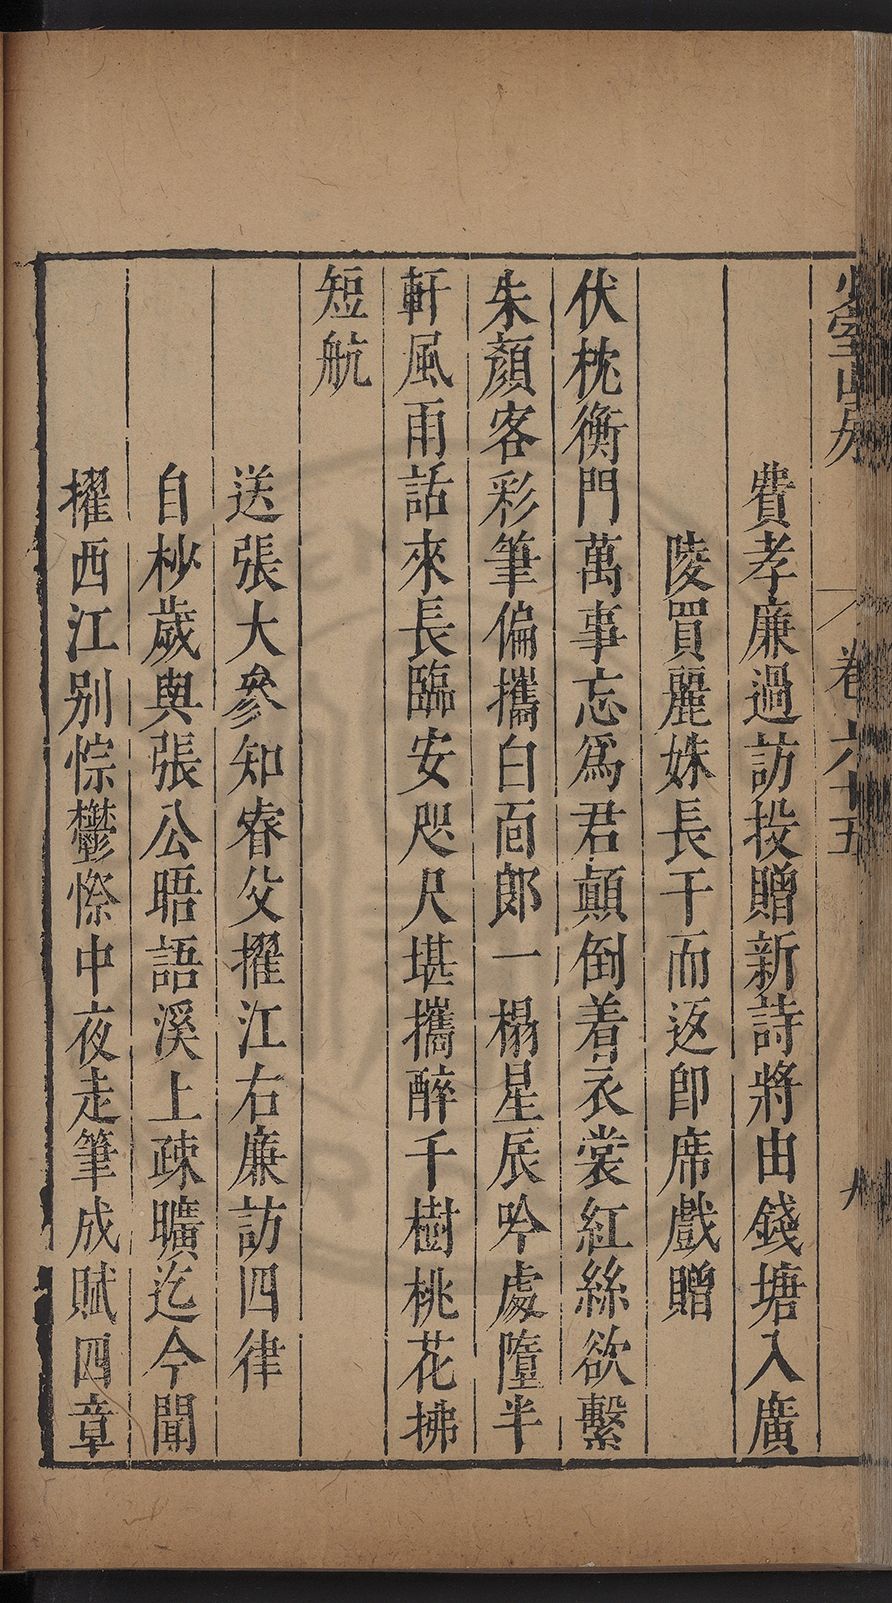 卷六十五
八
費孝廉過訪投贈新詩將由錢塘入廣
陵買麗姝長干而返卽席戲贈
伏枕衡門萬事忘爲君顛倒着衣裳紅絲欲繫
朱顏客彩筆偏攜白面郎一榻星辰吟處墮半
軒風雨話來長臨安咫尺堪攜醉千樹桃花拂
短航
送張大參知睿父擢江右廉訪四律
自杪歲與張公晤語溪上疎曠迄今聞
擢西江别悰鬱傺中夜走筆成賦四章